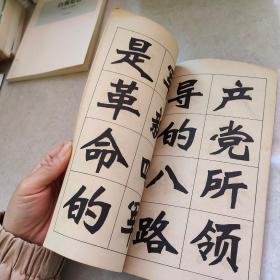 产党所领
导的八路
四
是革命的